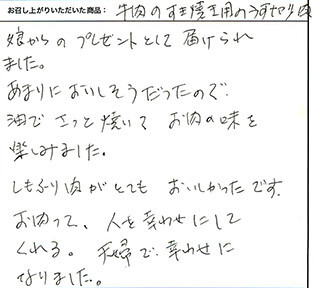 お召し上がりいただいた商品： 牛肉のすき焼き用のうすぎり肉
娘からの プレゼントとして 届けられ
ました。
あまりに おいしそうだったので
油で さっと 焼いて お肉の味を
楽しみました。
しもふり肉が とても おいしかったです。
お肉って、人を幸わせにして
くれる。夫婦で、幸わせに
なりました。